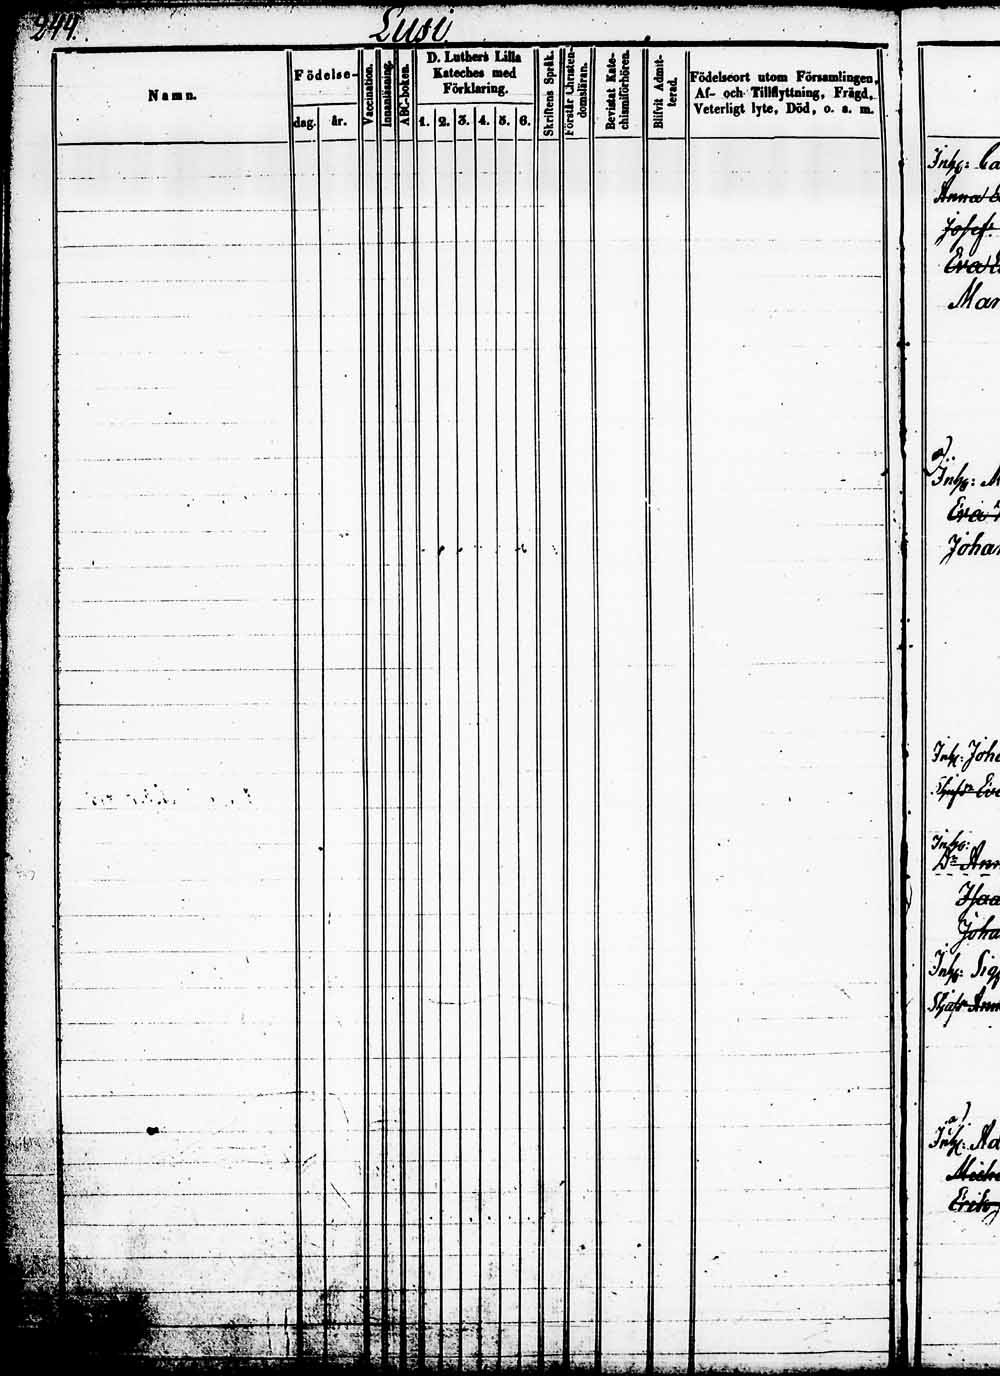 244.
Lusi
Namn.
Födelse-
dag.
år.
Vaccination.
Innanläsning.
ABC-boken.
D. Luthers Lilla
Kateches med
Förklaring.
1. 2. 3. 4. 5. 6.
Skriftens Språk.
Förstår Christen-
domsläran.
Bevistat Kate-
chismiförhören.
Blifvit Admit-
terad.
Födelseort utom Församlingen,
Af- och Tillflyttning, Frägd,
Veterligt lyte, Död, o. s. m.
Inh: Ca
Anna
Josef
Eva
Mar
a)
Inh: M
Eva
Johan
Inh: Joh
Eva
Inh:
Dr Ann
Isaa
Joha
Inh: Sig
Ann
a)
Inh: Ad
Miche
Erik